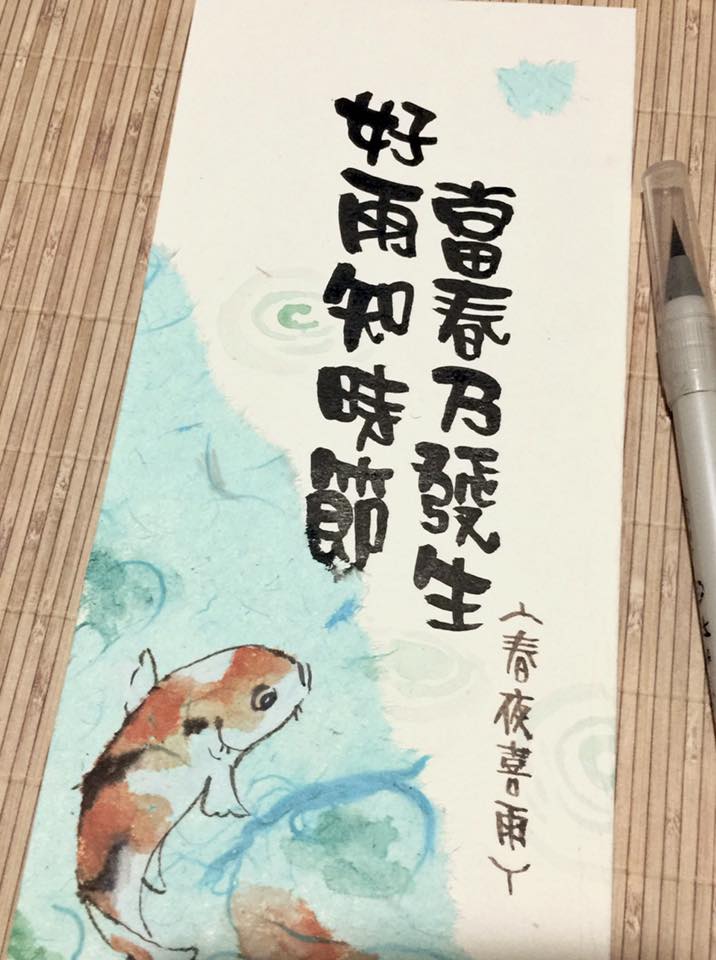 好雨知時節
當春乃發生
〈春夜喜雨〉